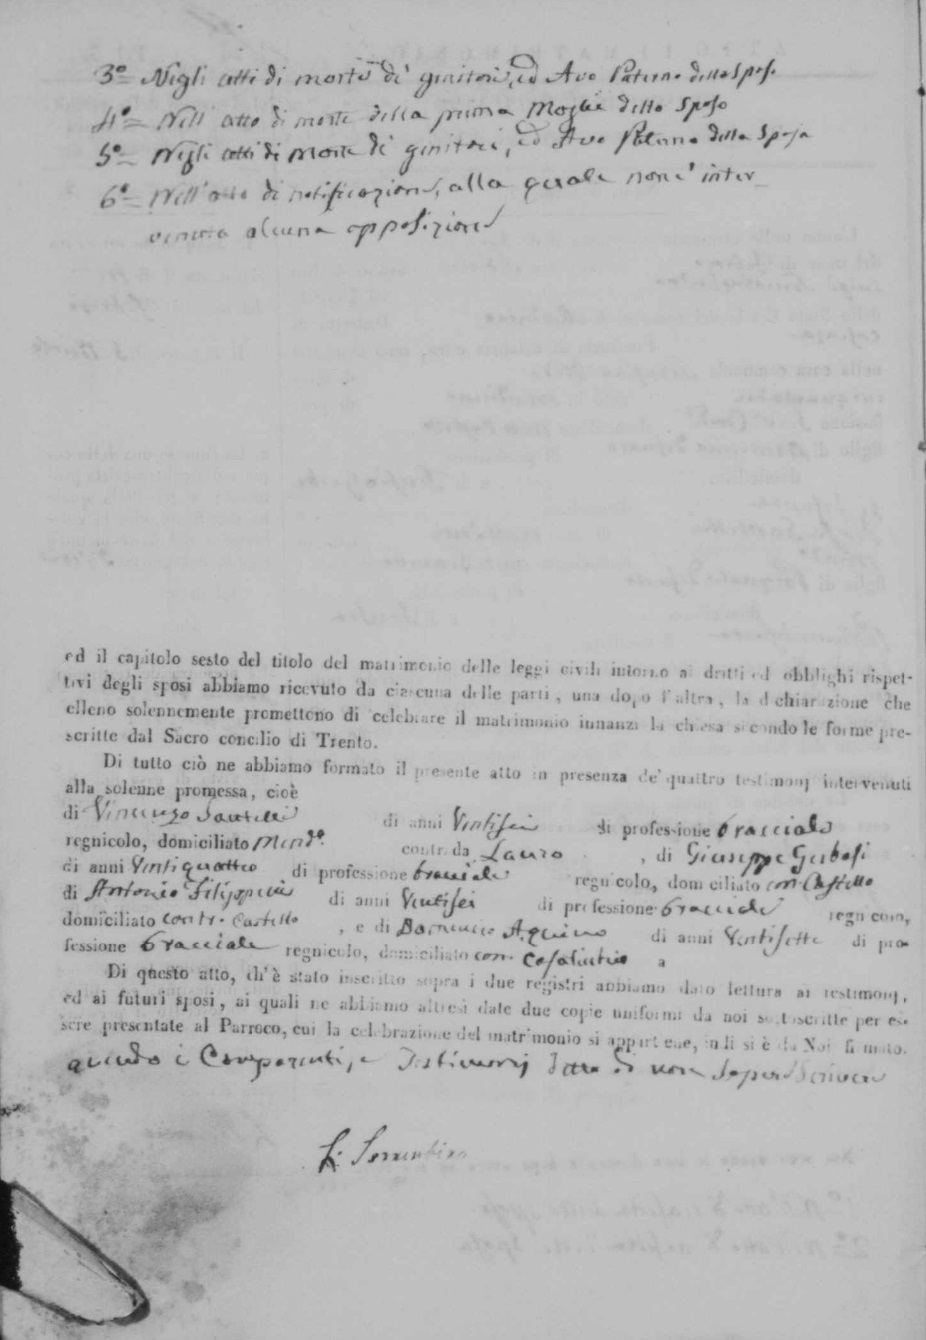 3°= Negli atti di morte di genitori, ed Avo Paterno dello Sposo
4°= Nell' atto di morte della prima Moglie dello Sposo
5°= Negli atti di Morte di genitori, ed Avo Paterno della Sposa
6°= Nell' atto di notificazione, alla quale non è inter-
venuta alcuna opposizione
ed il capitolo sesto del titolo del matrimonio delle leggi civili intorno ai dritti ed obblighi rispet-
tivi degli sposi abbiamo ricevuto da ciascuna delle parti, una dopo l'altra, la dichiarazione che
elleno solennemente promettono di celebrare il matrimonio innanzi la chiesa secondo le forme pre-
scritte dal Sacro concilio di Trento.
Di tutto ciò ne abbiamo formato il presente atto in presenza de' quattro testimonj intervenuti
alla solenne promessa, cioè
di Vincenzo Santelli di anni Ventisei di professione bracciale
regnicolo, domiciliato contrada Lauro, di Giuseppe
di anni Ventiquattro di professione bracciale regnicolo, domiciliato con. Castello
di Antonio di anni Ventisei di professione bracciale regnicolo,
domiciliato contr. Castello, e di Domenico Aquino di anni Ventisette di pro-
fessione bracciale regnicolo, domiciliato con. a
Di questo atto, ch'è stato inscritto sopra i due registri abbiamo dato lettura ai testimonj,
ed ai futuri sposi, ai quali ne abbiamo altresì date due copie uniformi da noi sottoscritte per es-
sere presentate al Parroco, cui la celebrazione del matrimonio si appartiene, indi si è da Noi firmato.
avendo i Comparenti, e Testimonj detto di non saper scrivere
Sorrentino